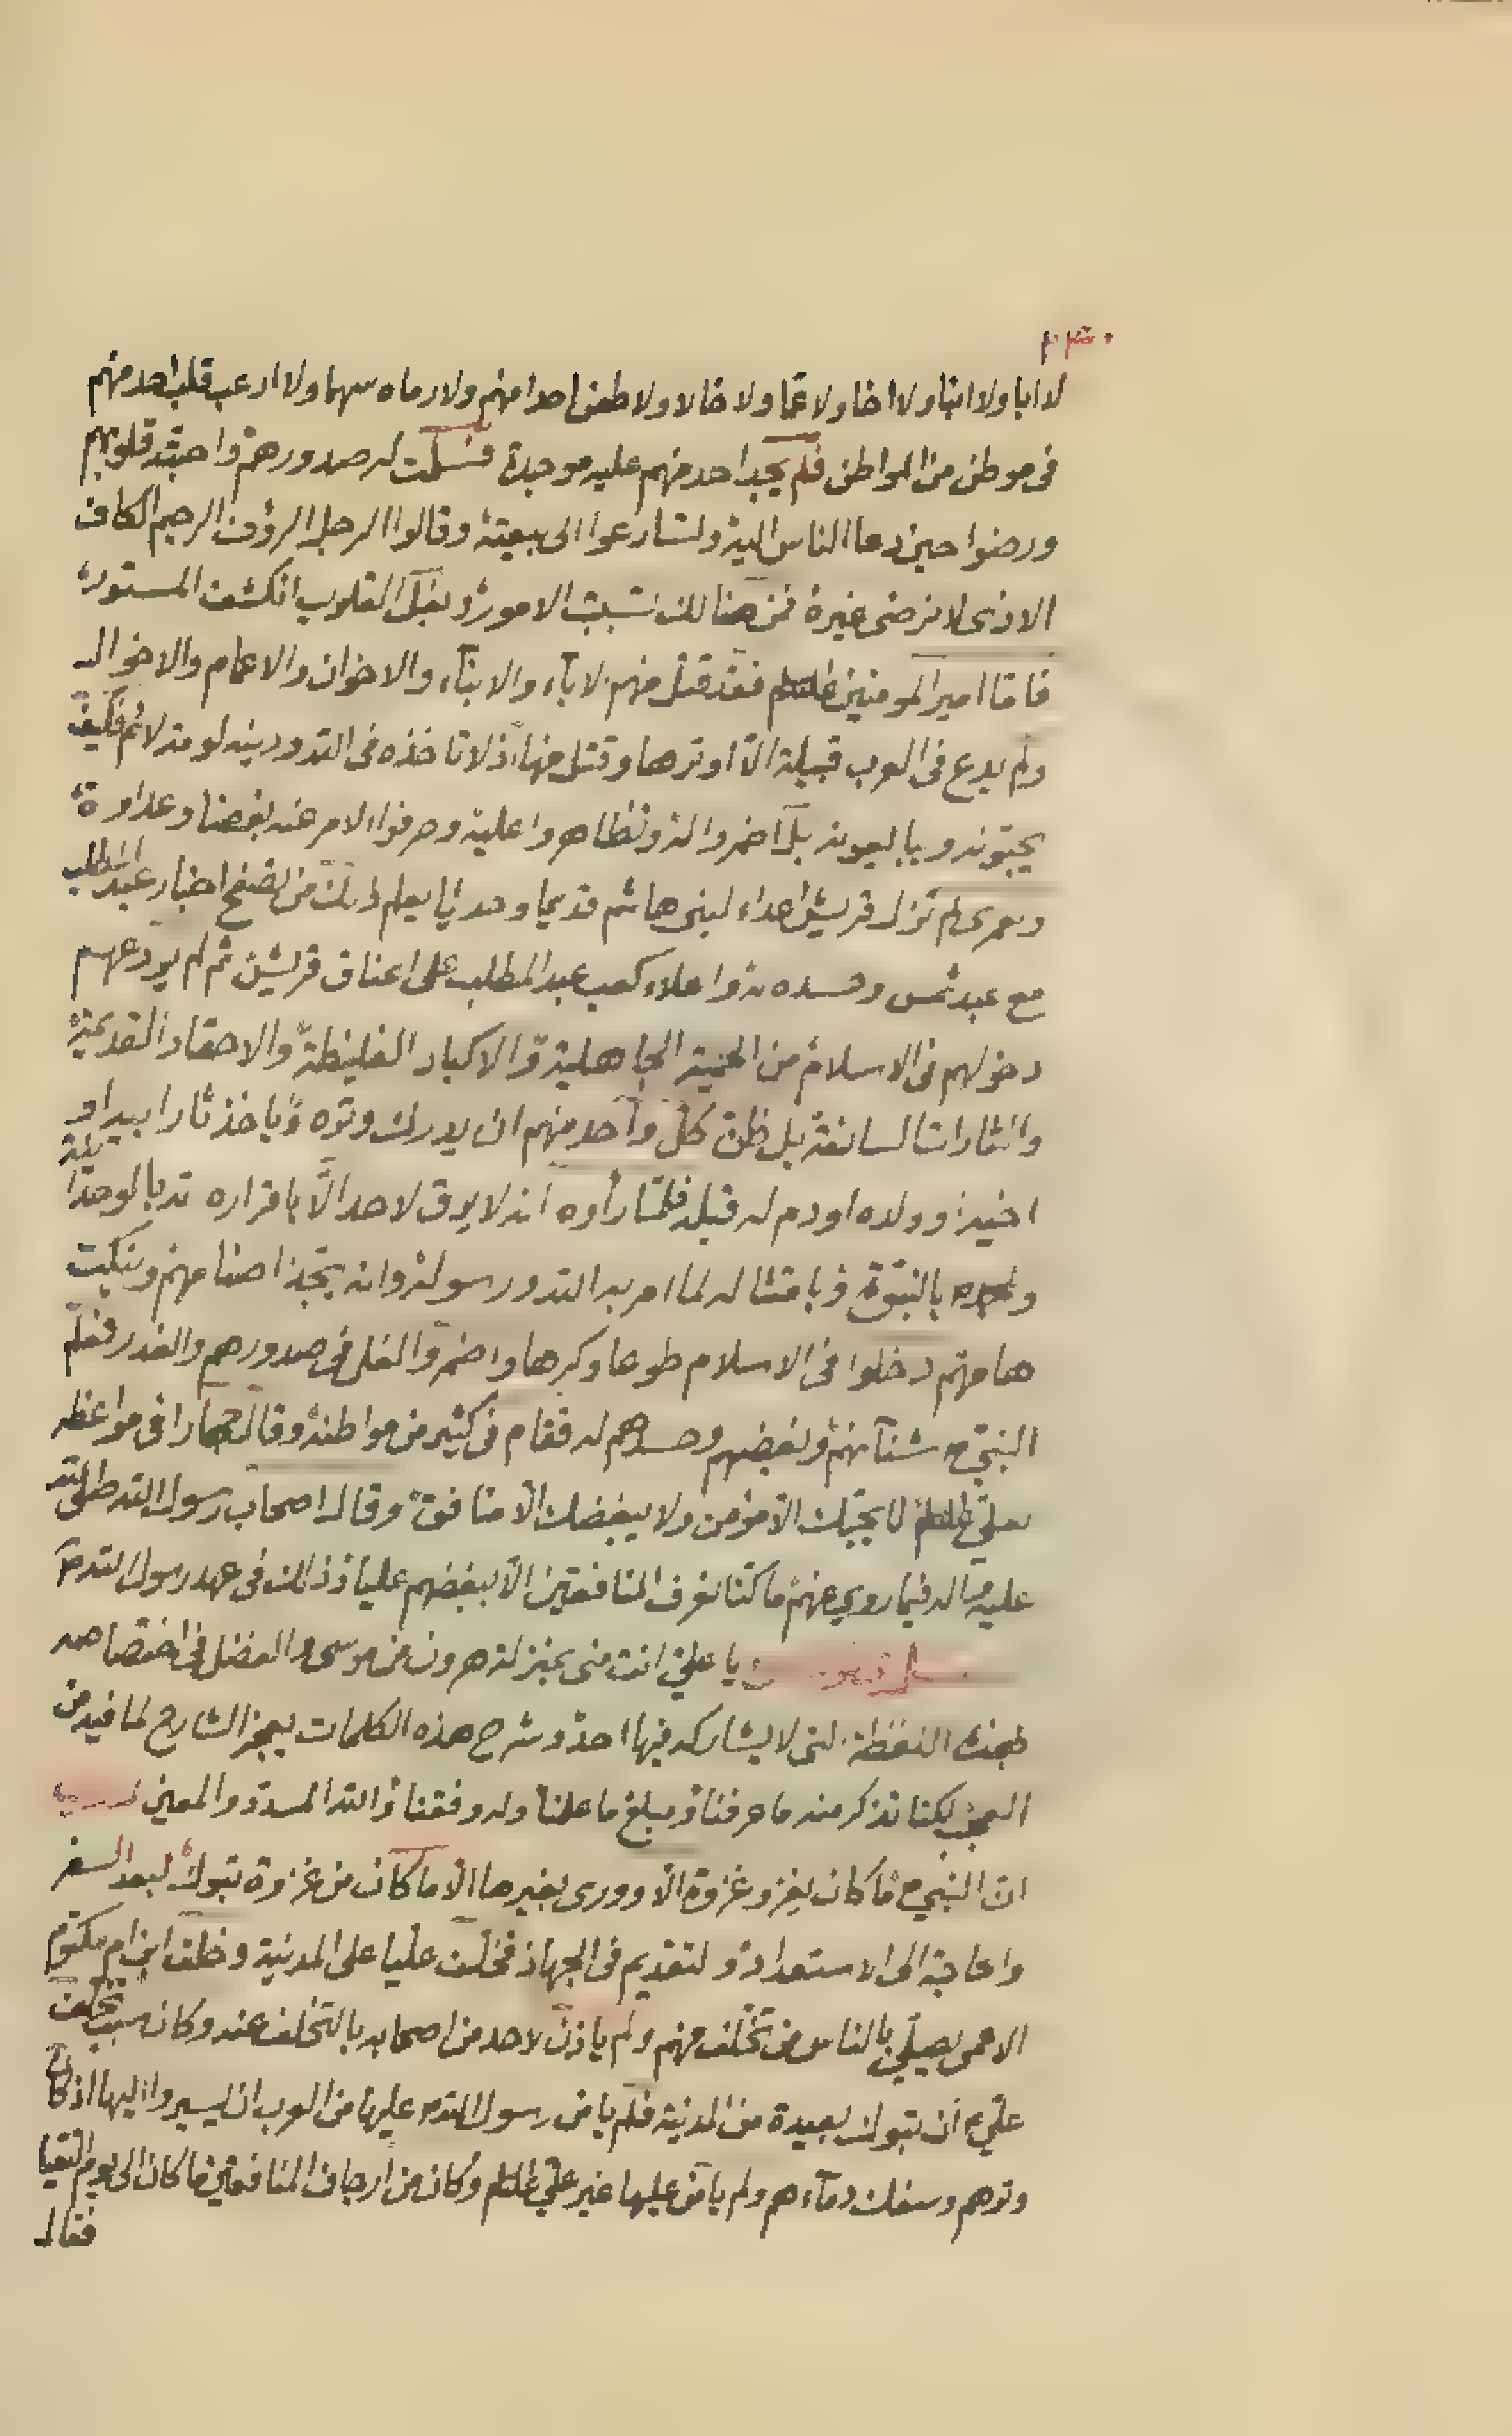 لا ابا ولا ابنا ولا اخا ولا عمّا ولا خالا ولا طعن احدا منهم ولا رماه سهما ولا ارعب قلب احد منهم
فى موطن من المواطن فلم يجد احد منهم عليه موجدة فسلمت له صدورهم واحبته قلوبهم
ورضوا حين دعا الناس اليه ولتسارعوا الى بيعته وقالوا الرجل الرؤف الرحيم الكاف
الاذى لا نرضى غيره فمن هنالك الامور القلوب انكشف المستور
فامّا امير المومنين فقد قتل منهم الابآء والابنآء والاخوان والاعمام والاخوال
ولم يدع فى العرب قبيلة الّا اوترها وقتل منها اذ لا تاخذه فى الله ودينه لومة لائم فكيف
يحبّونه ويبايعونه بل اضمروا له وتظاهروا عليه وصرفوا الامر عنه بغضا وعداوة
ولعمرى لم تزل قريش اعداء لبنى هاشم قديما وحديثا يعلم ذلك من تصفح اخبار عبد المطلب
مع عبد شمس وحسده له واعلاء كعب عبد المطلب على اعناق قريش ثم لم يردعهم
دخولهم فى الاسلام من الحمية الجاهلية والاكباد الغليظة والاحقاد القديمة
والثارات السابقة بل ظن كل واحد منهم ان يدرك وتره وياخذ ثار ابيه او
اخيه او ولده او دم له قبله فلمّا راوه انه لا يرق لاحد الّا باقراره لله بالوحدانية
ولمحمد بالنبوّة وبامتثاله لما امر به الله ورسوله وانه يجذ اصنامهم وينكت
هامهم دخلوا فى الاسلام طوعا وكرها واضمروا الغل فى صدورهم والغدر فعلم
النبى شنآنهم وبغضهم وحسدهم له فقام فى كثير من مواطنه وقال جهارا فى مواعظه
لعلى لا يحبّك الّا مؤمن ولا يبغضك الّا منافق وقال اصحاب رسول الله صلى الله
عليه واله فيما روي عنهم ما كنّا نعرف المنافقين الّا ببغضهم عليا وذلك فى عهد رسول الله
يا علي انت منى بمنزلة هرون من موسى والفضل فى اختصاصه
بهذه اللفظة التى لا يشاركه فيها احد وشرح هذه الكلمات يعجز الشارح لما فيه من
العجب لكنا نذكر منه ما عرفنا ومبلغ ما علمنا وله وفقنا والله المسدد والمعين
ان النبي ما كان يغزو غزوة الّا وورى بغيرها الّا ما كان من غزوة تبوك لبعد السفر
والحاجة الى الاستعداد والتقديم فى الجهاد فخلّف عليا على المدينة وخلف ابن ام مكتوم
الاعمى يصلّي بالناس من تخلّف منهم ولم ياذن لاحد من اصحابه بالتخلف عنه وكان سبب تخلف
علي ان تبوك بعيدة من المدينة فلم يامن رسول الله عليها من العرب ان يسيروا اليها اذ كان
وترهم وسفك دمآءهم ولم يامن عليها غير علي وكان من ارجاف المنافقين ما كان الى يوم القيا
فقال